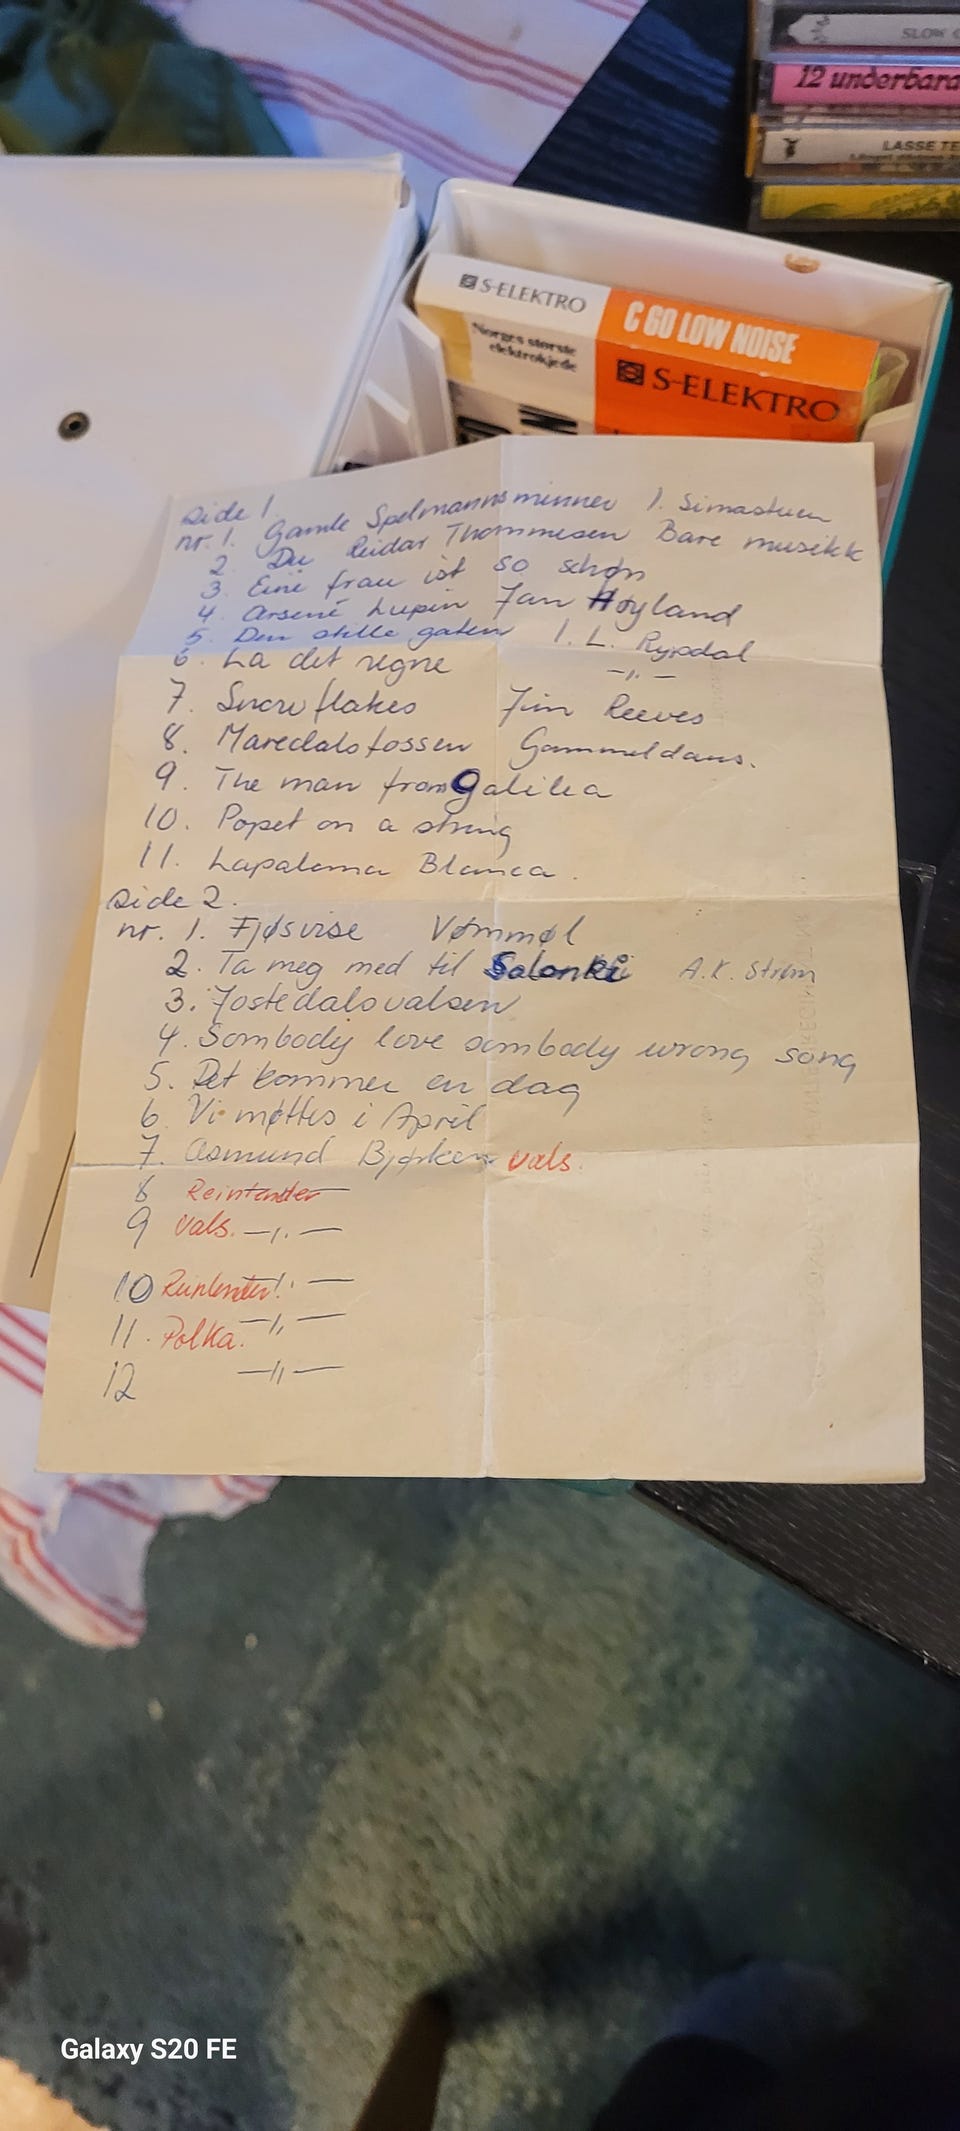 SLOW
12 underbara
LASSE TE
S-ELEKTRO
C 60 LOW NOISE
Norges største
elektrokjede
S-ELEKTRO
side 1.
nr. 1. Gamle Spelmannsminner I. Simastuen
2. Du Reidar Thommesen Bare musikk
3. Eine frau ist so schøn
4. Arsené Lupin Jan Høyland
5. Den stille gaten I. L. Rypdal
6. La det regne -"-
7. Snow flakes Jim Reeves
8. Maredalsfossen Gammeldans.
9. The man from Galilea
10. Popet on a string
11. Lapaloma Blanca.
side 2.
nr. 1. Fjøsvise Vømmøl
2. Ta meg med til A.K. Strøm
3. Jostedalsvalsen
4. Sombody love sombody wrong song
5. Det kommer en dag
6. Vi møttes i April
7. Asmund Bjørken vals.
8 Reinlender
9 vals. -"-
10 Reinlender -"-
11. Polka. -"-
12 -"-
Galaxy S20 FE